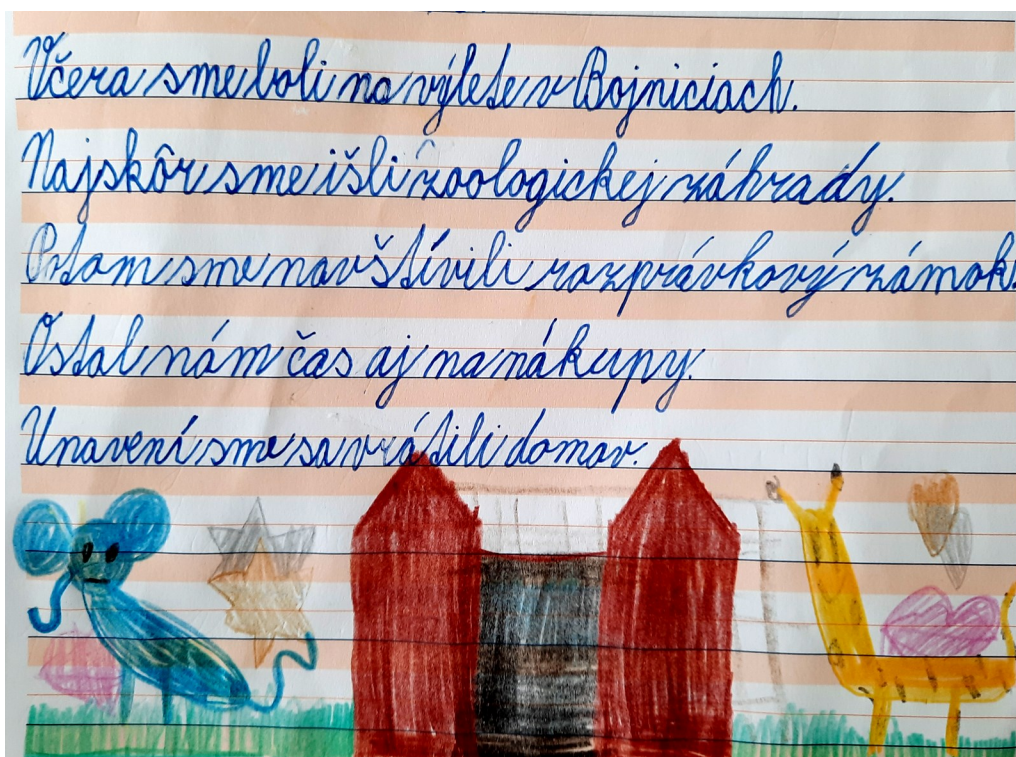 Včera sme boli na výlete v Bojniciach.
Najskôr sme išli zoologickej záhrady.
Potom sme navštívili rozprávkový zámok.
Ostal nám čas aj na nákupy.
Unavení sme sa vrátili domov.